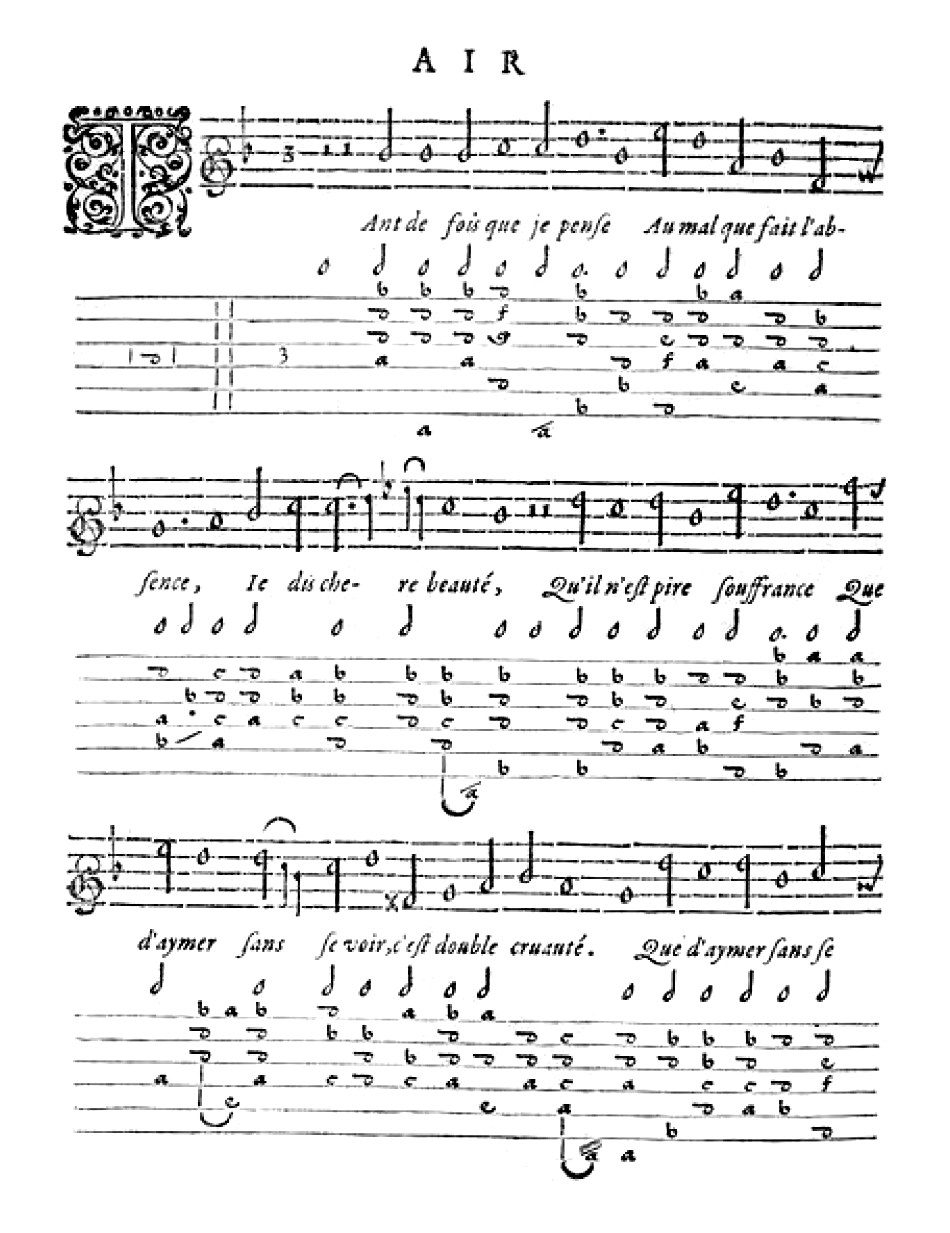 AIR
TAnt de fois que je pense Au mal que fait l'ab-
sence, Ie dis che- re beauté, Qu'il n'est pire souffrance Que
d'aymer sans se voir, c'est double cruauté. Que d'aymer sans se